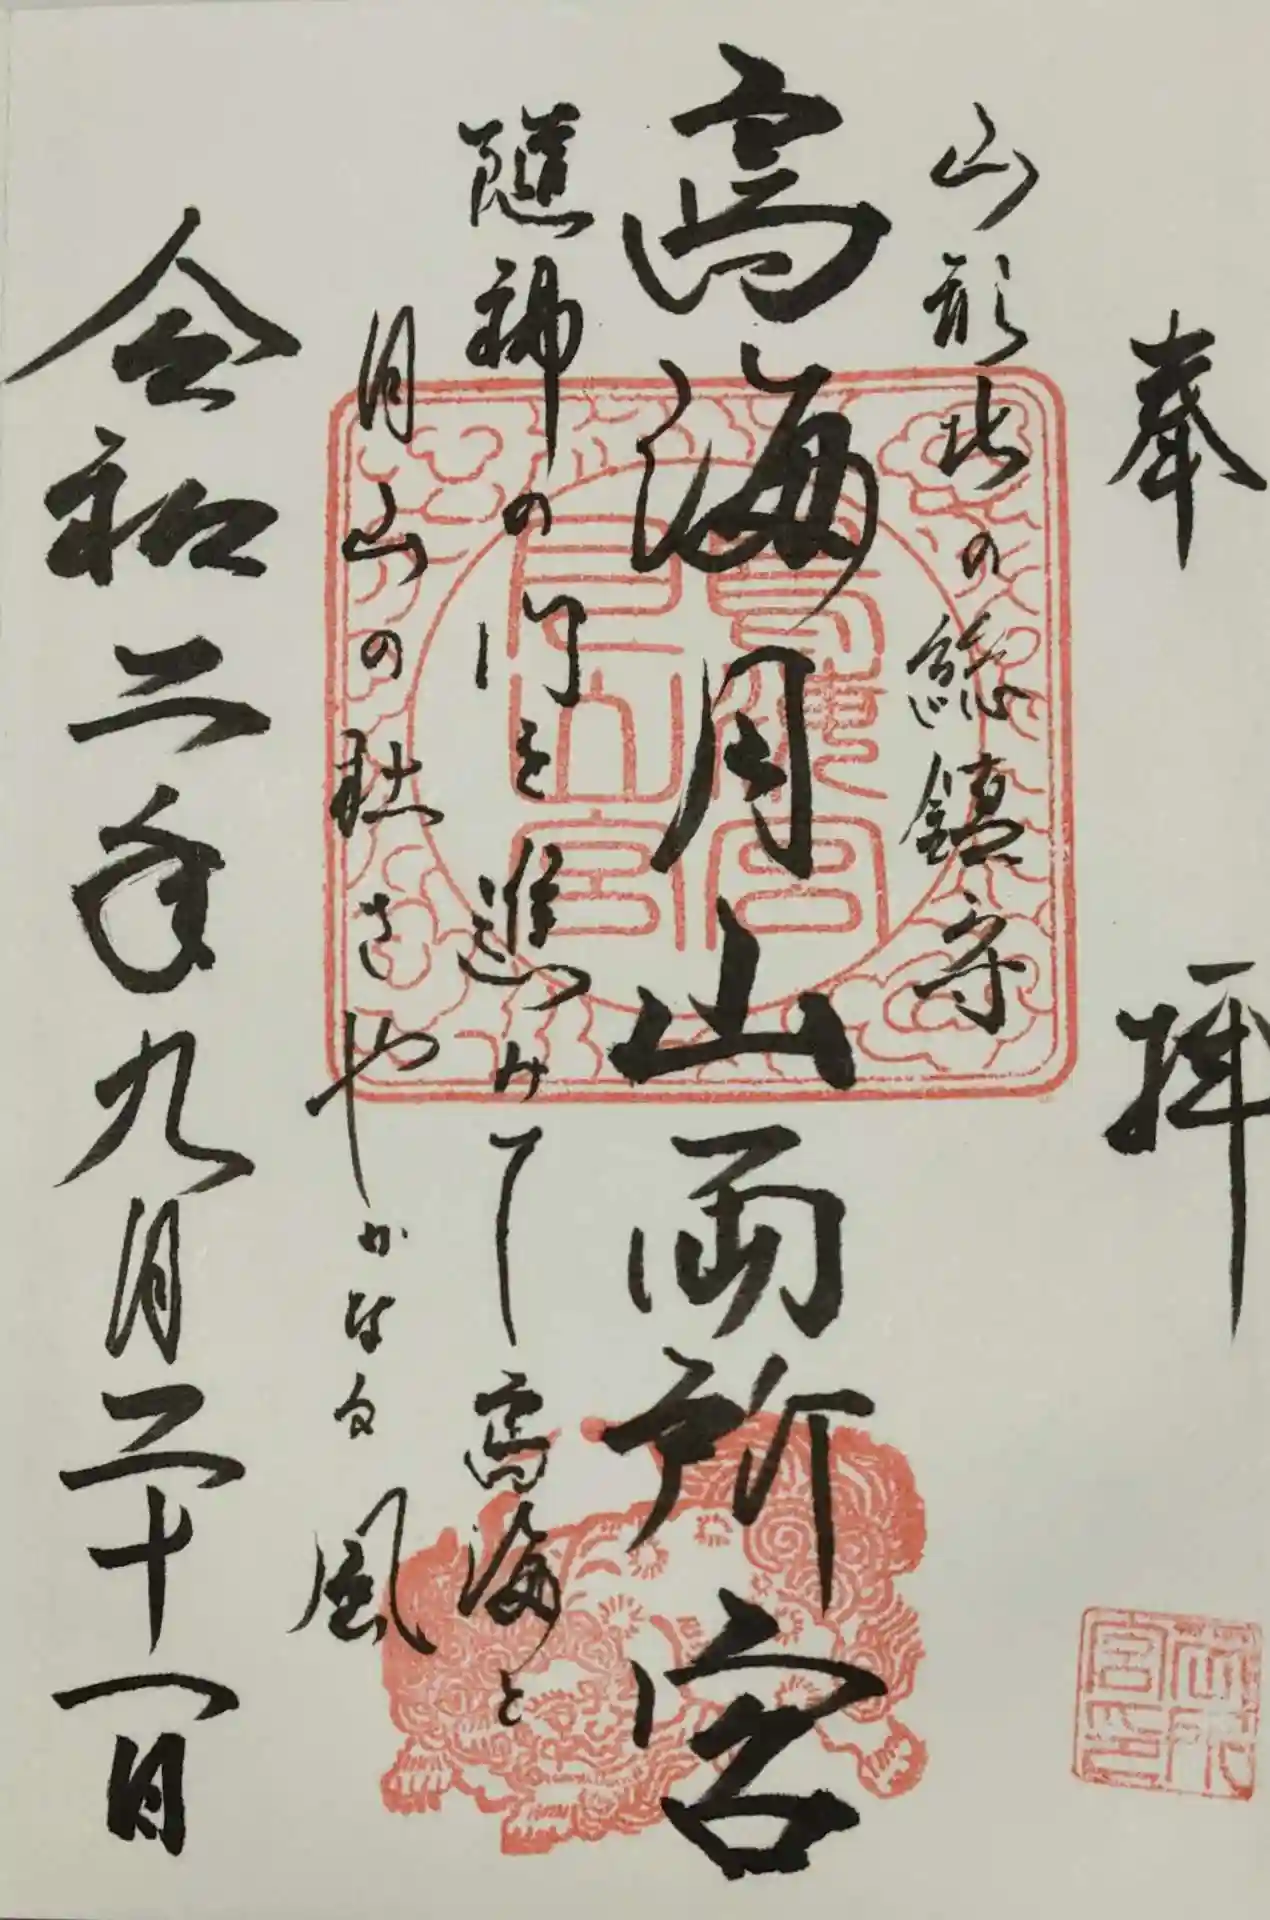 奉拝
山形北の総鎮守
鳥海月山両所宮
隨神の門を進みて鳥海と
月山の社さやかなる風
令和二年九月二十一日
鳥海宮
月山宮
両所宮印